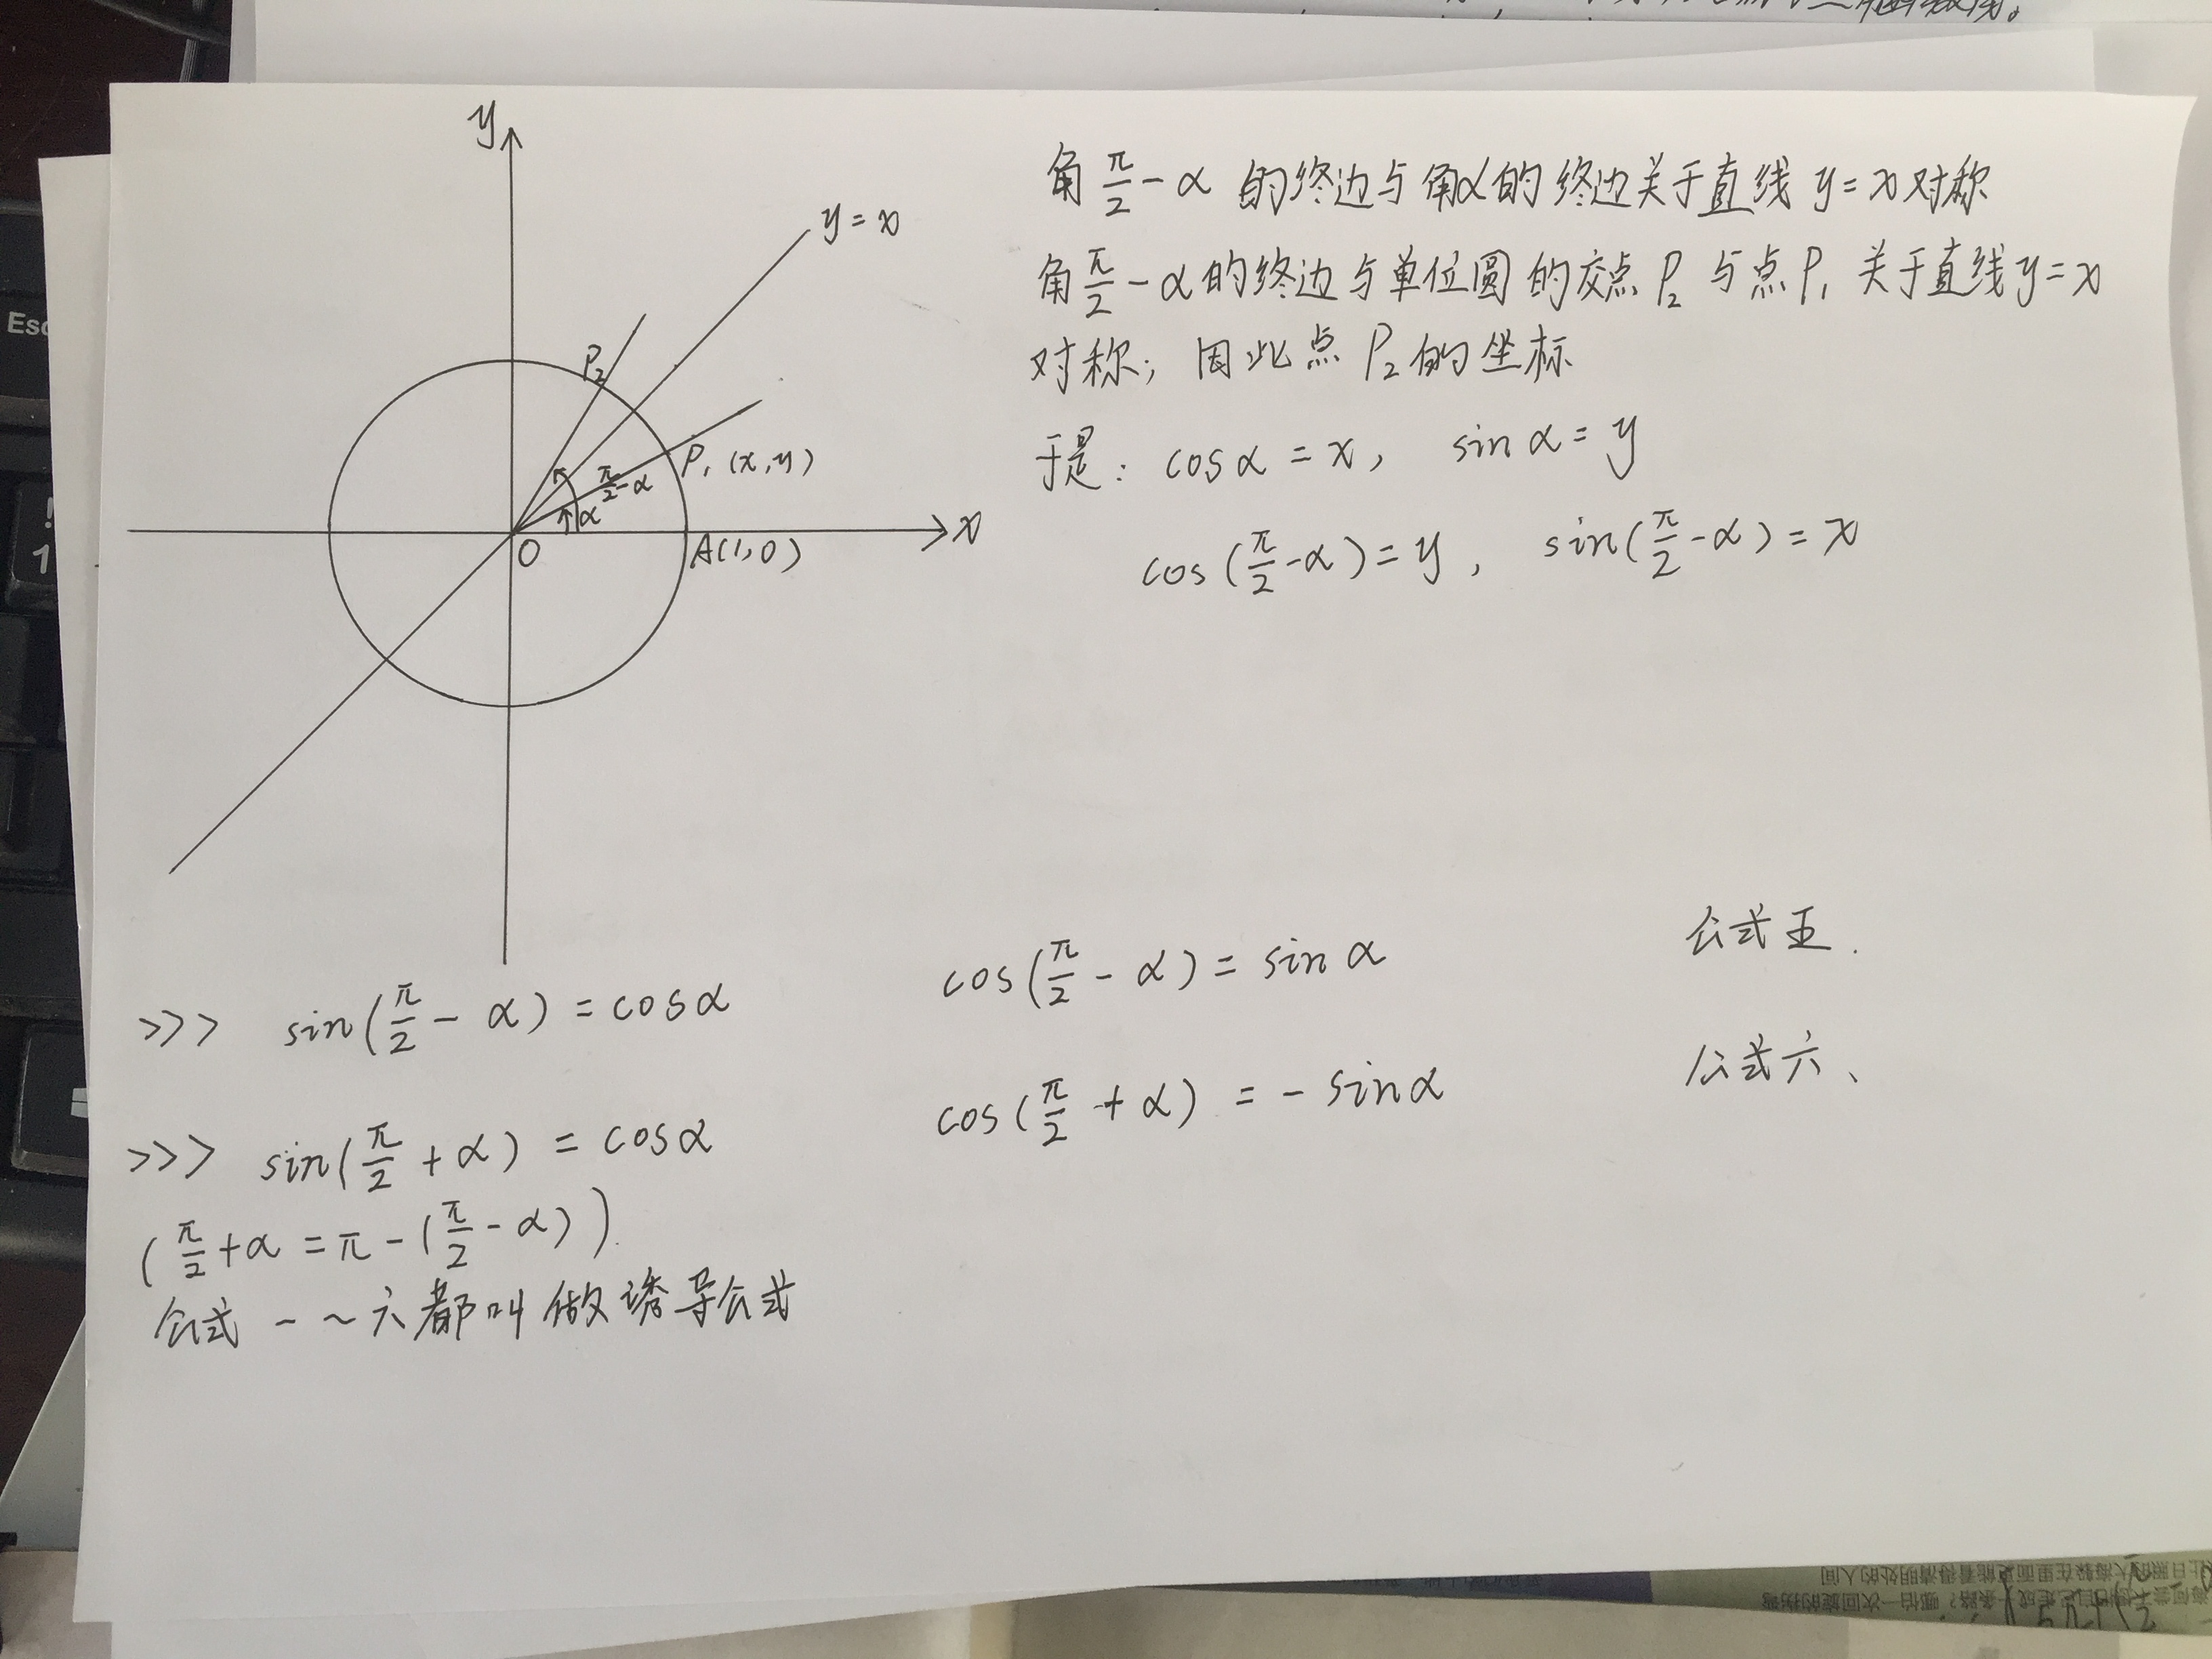 y
y=x
P₂
P₁(x,y)
π/2-α
α
x
O
A(1,0)
角 π/2-α 的终边与角α的终边关于直线 y=x对称
角π/2-α的终边与单位圆的交点P₂与点P₁关于直线y=x
对称；因此点P₂的坐标
于是：cosα=x， sinα=y
cos(π/2-α)=y， sin(π/2-α)=x
公式五.
>>> sin(π/2-α)=cosα cos(π/2-α)=sinα
公式六、
>>> sin(π/2+α)=cosα cos(π/2+α)=-sinα
(π/2+α=π-(π/2-α)).
公式一～六都叫做诱导公式
Esc
!
1